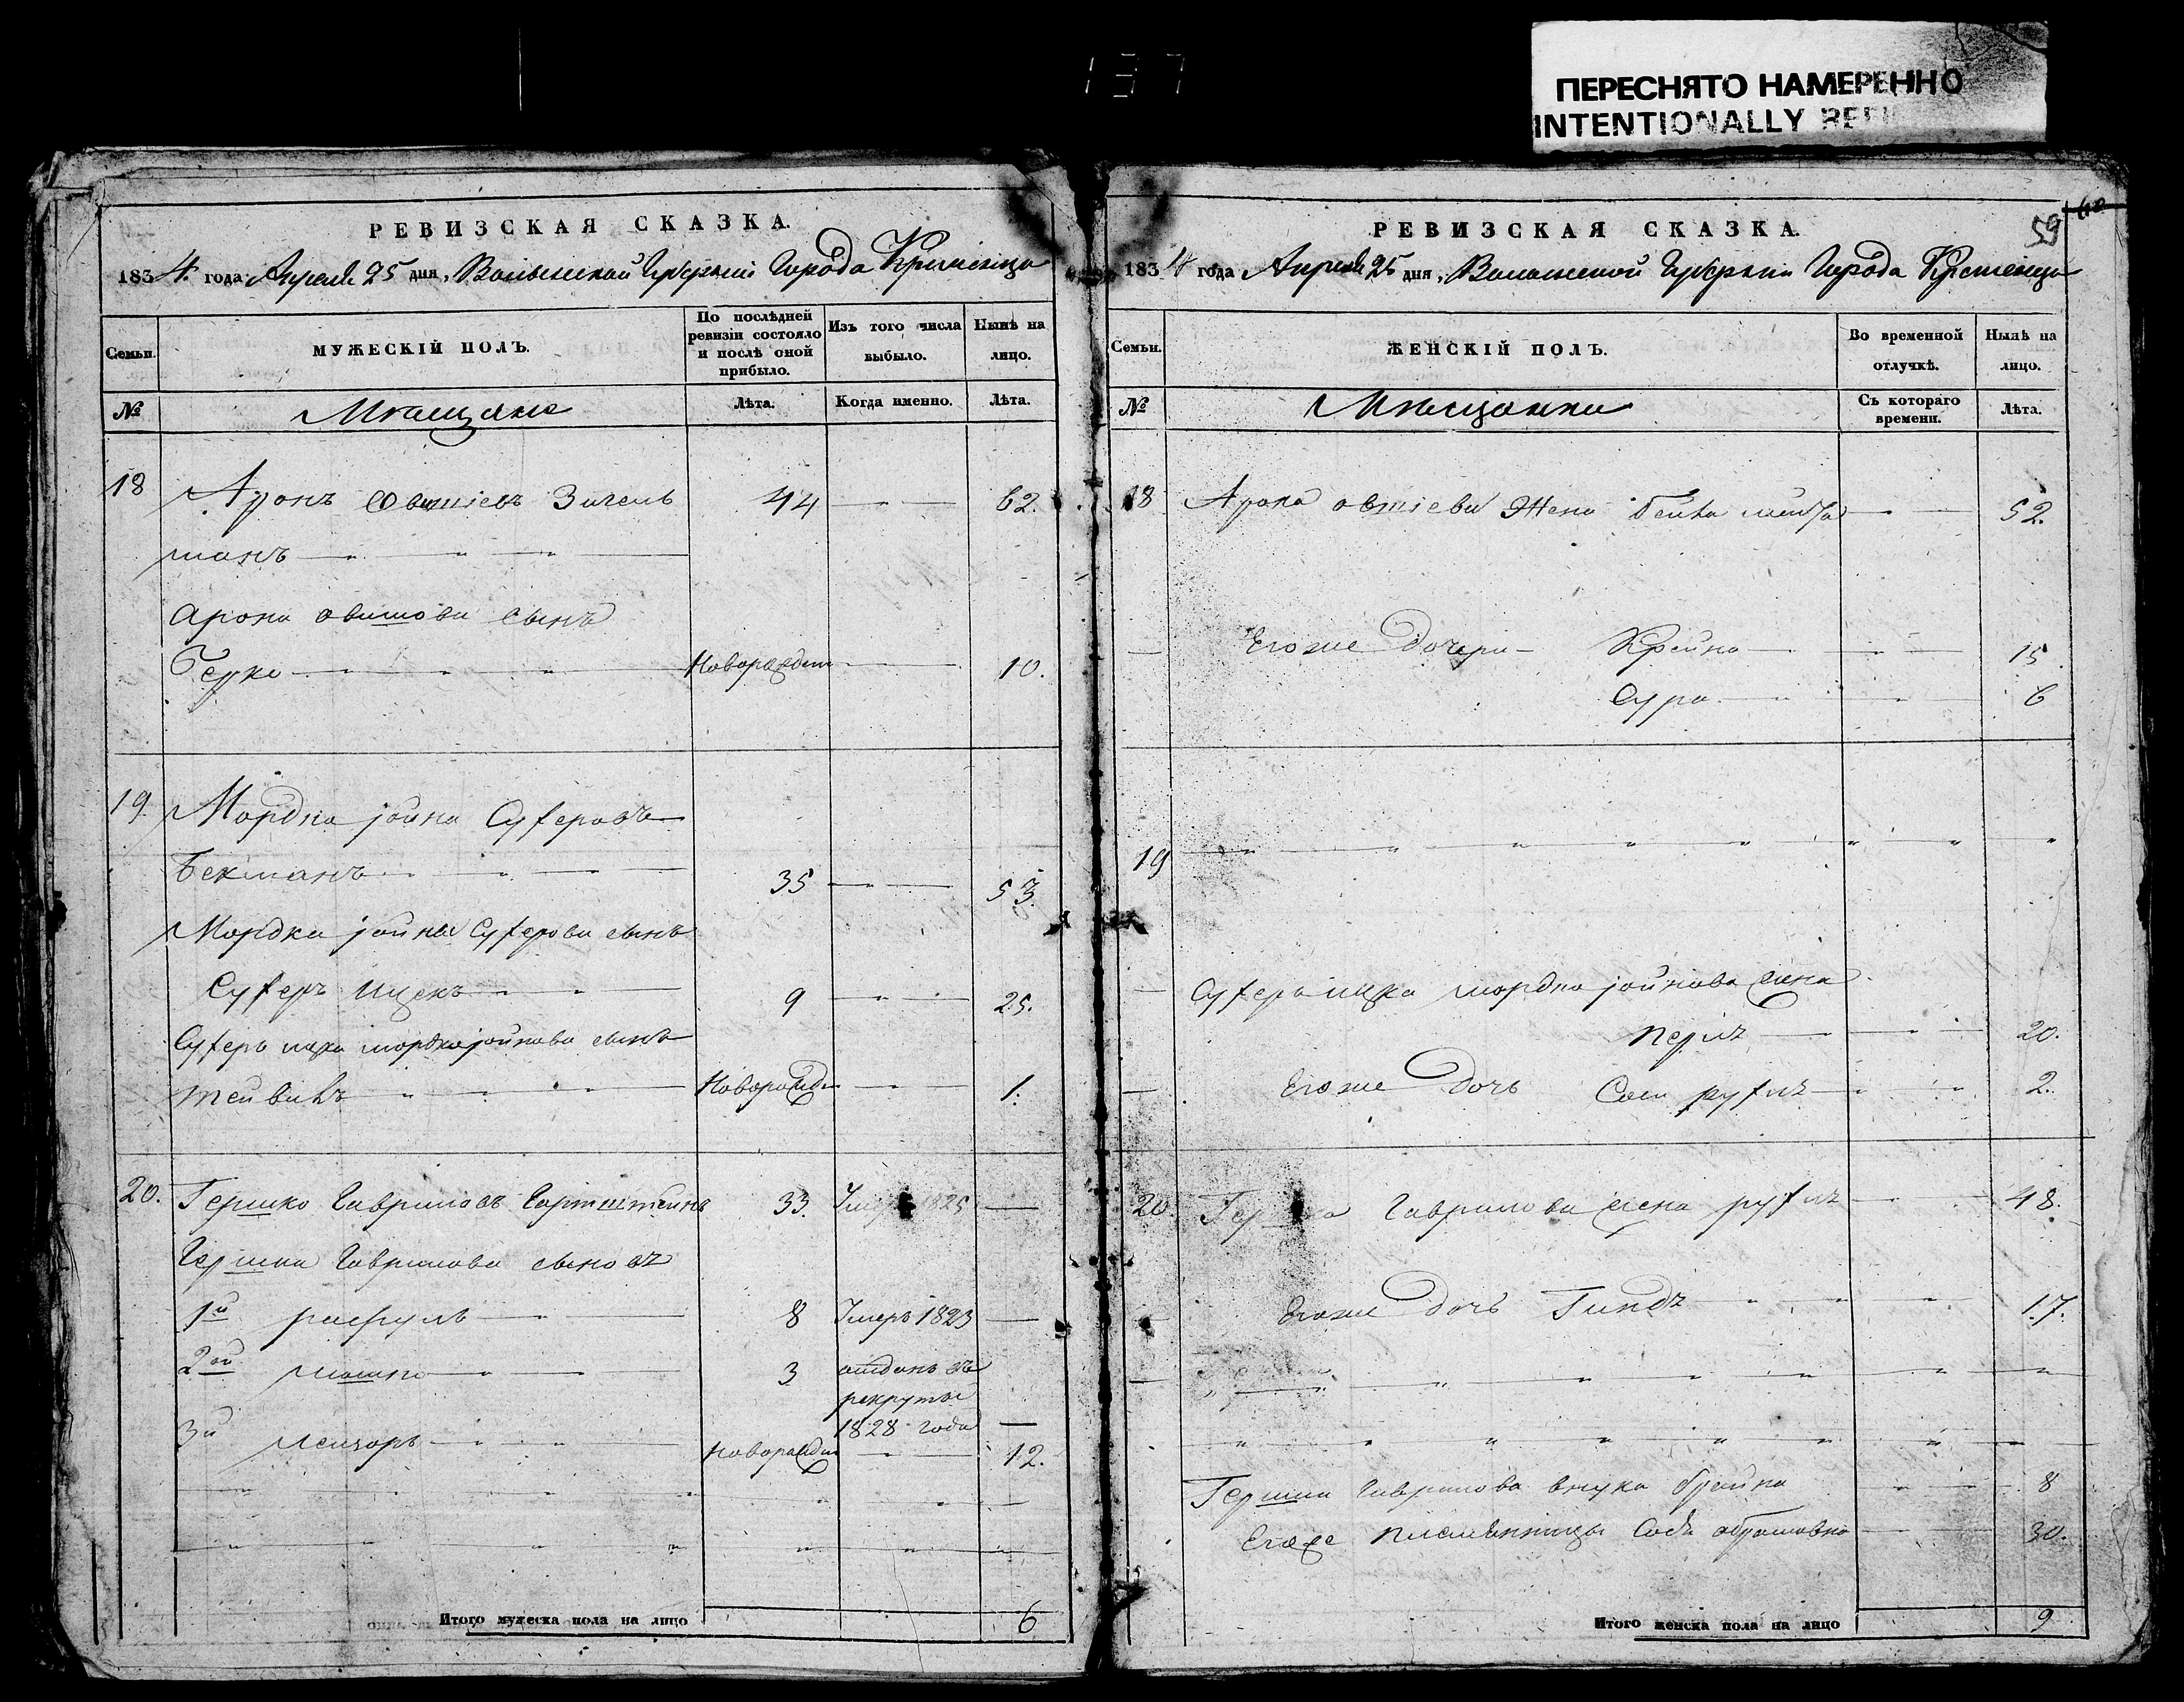 137
ПЕРЕСНЯТО НАМЕРЕННО
INTENTIONALLY
РЕВИЗСКАЯ СКАЗКА.
1834 года Апреля 25 дня, Волынской Губернiи Города Кременца
Семьи.
МУЖЕСКIЙ ПОЛЪ.
По послѣдней ревизiи состояло и послѣ оной прибыло.
Изъ того числа выбыло.
Нынѣ на лицо.
№
Мещане
Лѣта.
Когда именно.
Лѣта.
18 Аронъ Овшiевъ Зигель 44 62.
манъ
Арона овшова сынъ
Берко Новорожден 10.
19. Мордко iойна Суферовъ
Бекманъ 35 53.
Мордка iойна Суферова сынъ
Суферъ Ицекъ 9 25.
Суферъ ицка мордкоiойнова сынъ
Лейвикъ Новорожде 1.
20. Гершко Гавриловъ Гартштейнъ 33. Умеръ 1825
Гершка Гаврилова сыновъ
1й рафуль 8 Умеръ 1823
2ой мошко 3 отданъ въ
рекруты
1828 года
3й лейзоръ Новорожден 12.
Итого мужеска пола на лицо 6
59
60
РЕВИЗСКАЯ СКАЗКА.
1834 года Апреля 25 дня, Волынской Губернiи Города Кременца
Семьи.
ЖЕНСКIЙ ПОЛЪ.
Во временной отлучкѣ.
Нынѣ на лицо.
№
Мещанки
Съ котораго времени.
Лѣта.
18 Арона овшiева Жена Бейла 52.
Егоже Дочери Крейна 15.
Сура 6
19
Суферъ ицка мордко iойнова жена
перль 20.
Егоже Дочь Сося руфль 2.
20 Гершка Гаврилова жена руфль 48.
Егоже дочь Гиндъ 17.
Гершка Гаврилова внука брайна 8
Егоже племенницы Сося абрамовна 30.
Итого женска пола на лицо 9